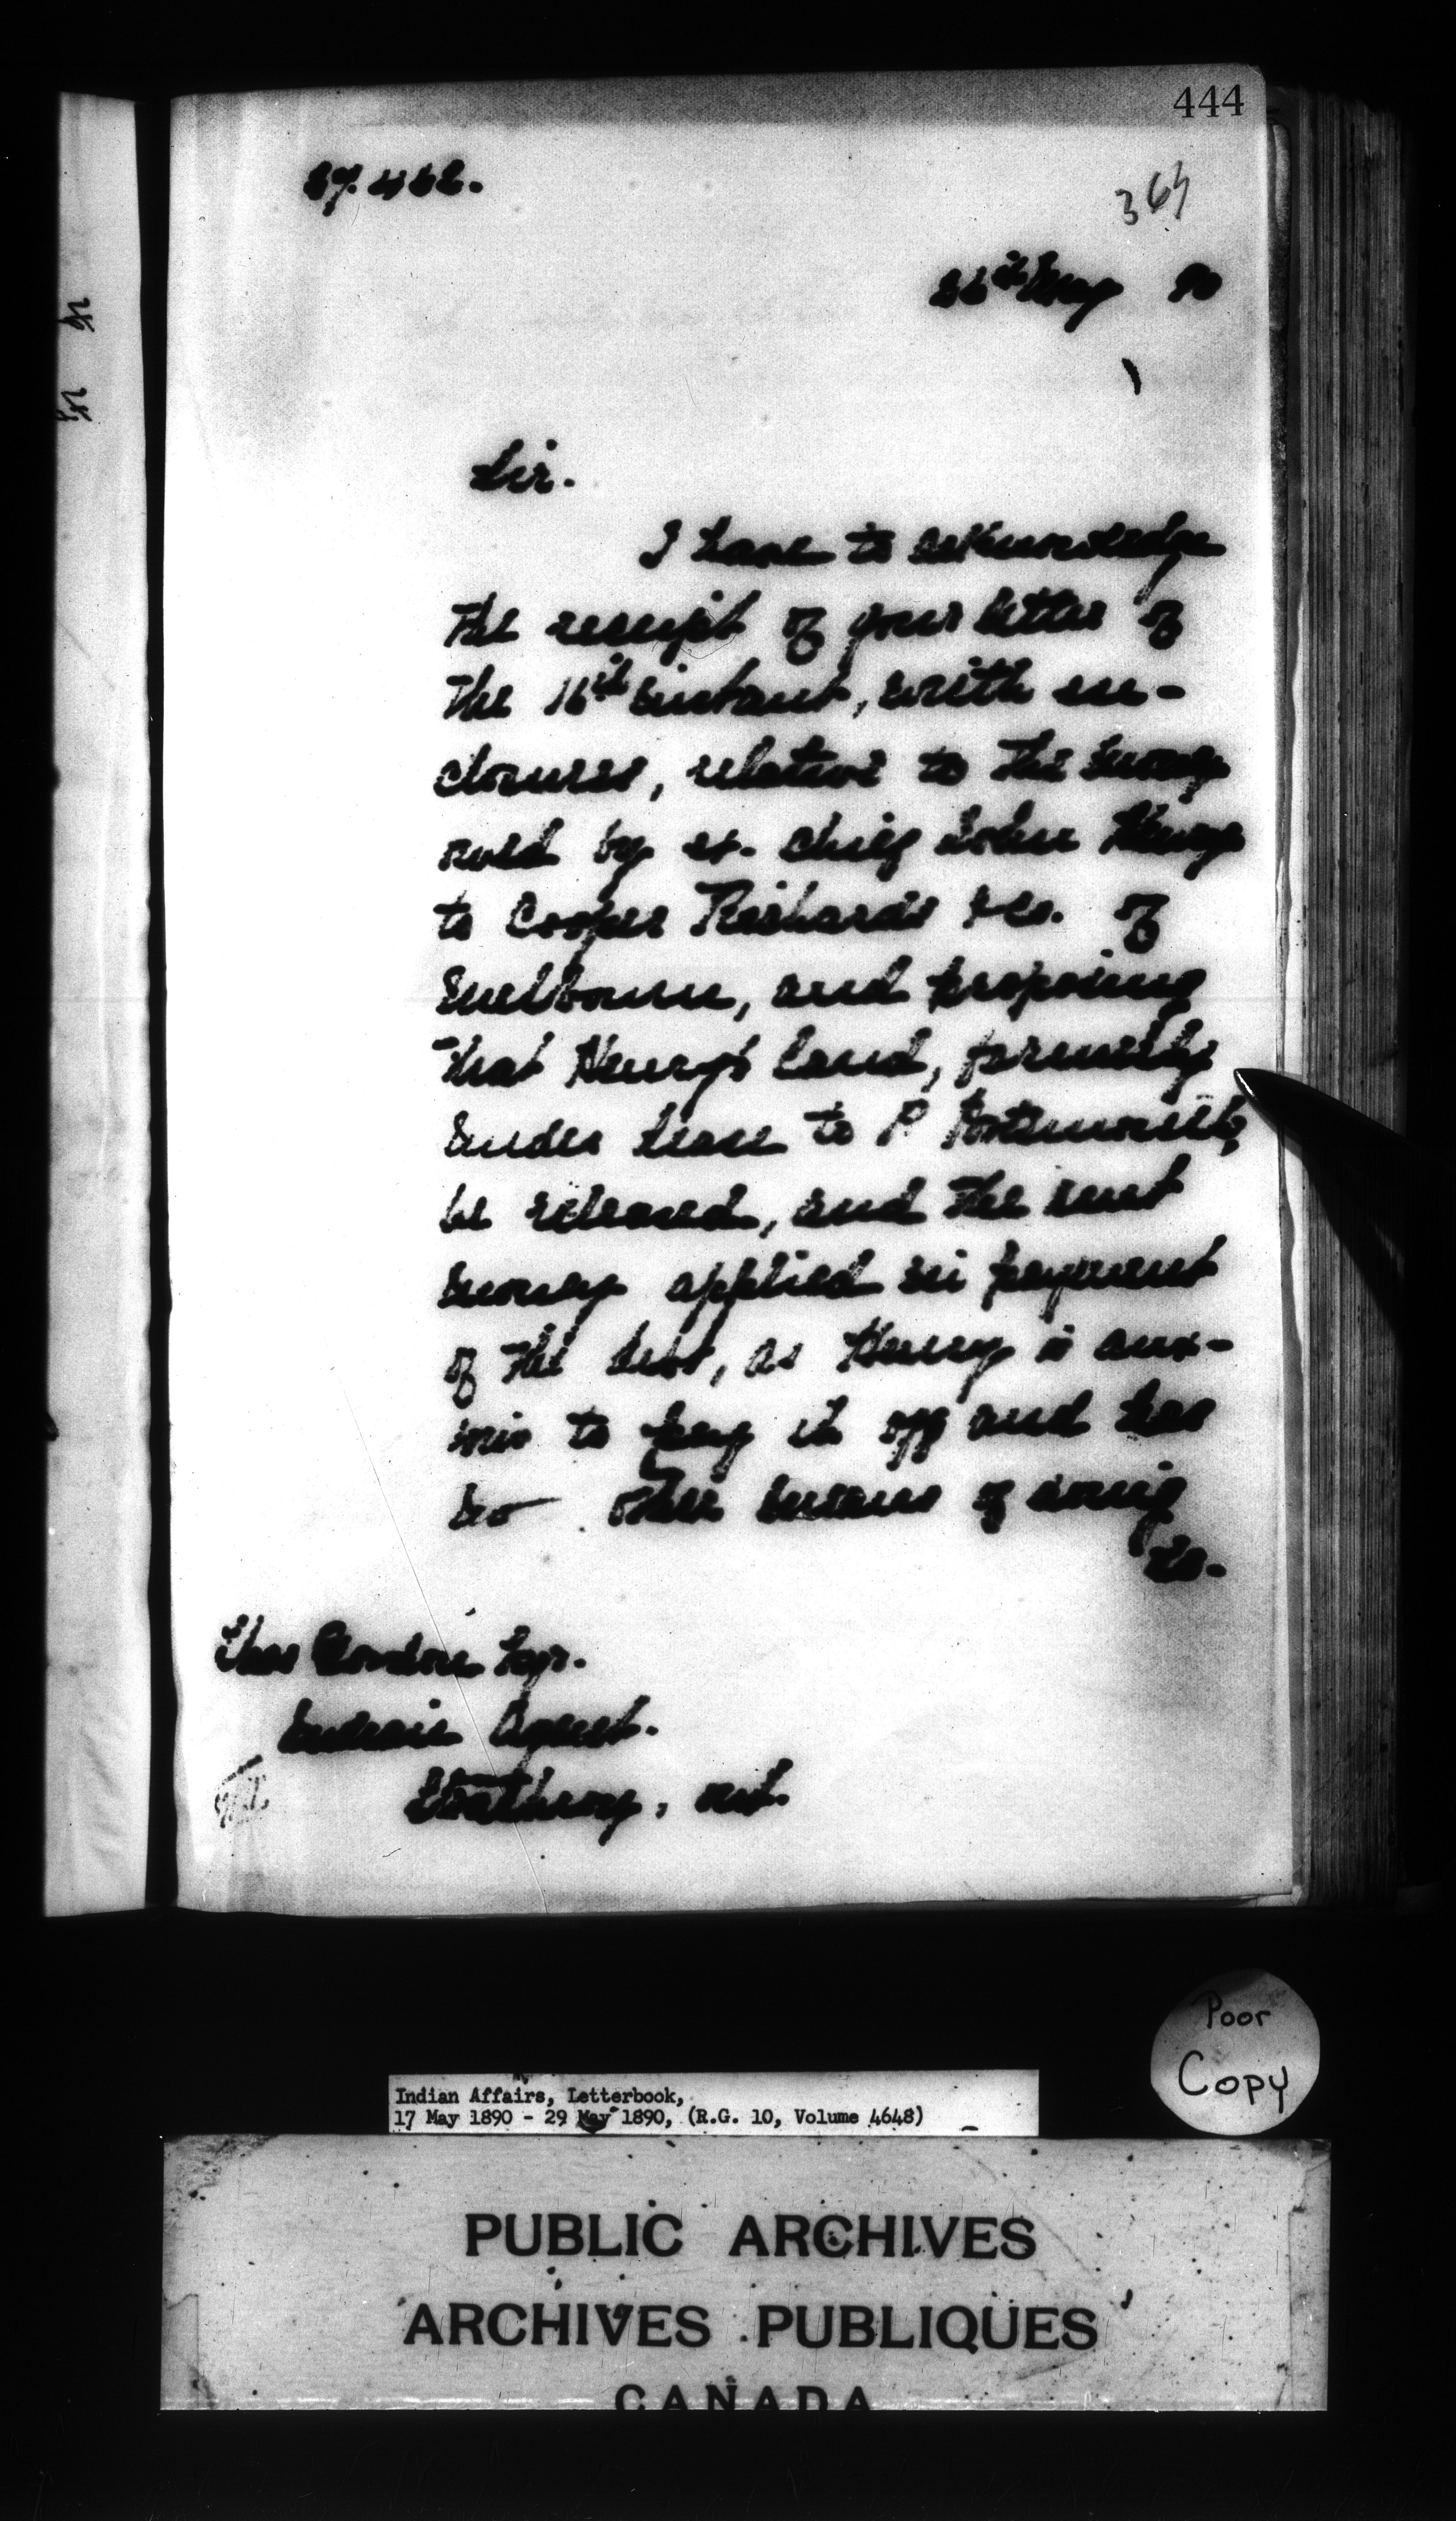 444
364
26th May 90
Sir.
I have to acknowledge
the receipt of your letter of
the 16th instant, with en-
closures, relative to the money
owed by ex. Chief John Henry
to Cooper Richards & Co. of
Melbourne, and proposing
that Henry's land, formerly
under lease to P
be released, and the rent
money applied in payment
of the debt, as Henry is anx-
ious to pay it off and has
no other means of doing
so.
Thos Gordon Esqr.
Indian Agent.
Strathroy, Ont.
Poor
Copy
Indian Affairs, Letterbook,
17 May 1890 - 29 May 1890, (R.G. 10, Volume 4648)
PUBLIC ARCHIVES
ARCHIVES PUBLIQUES
CANADA